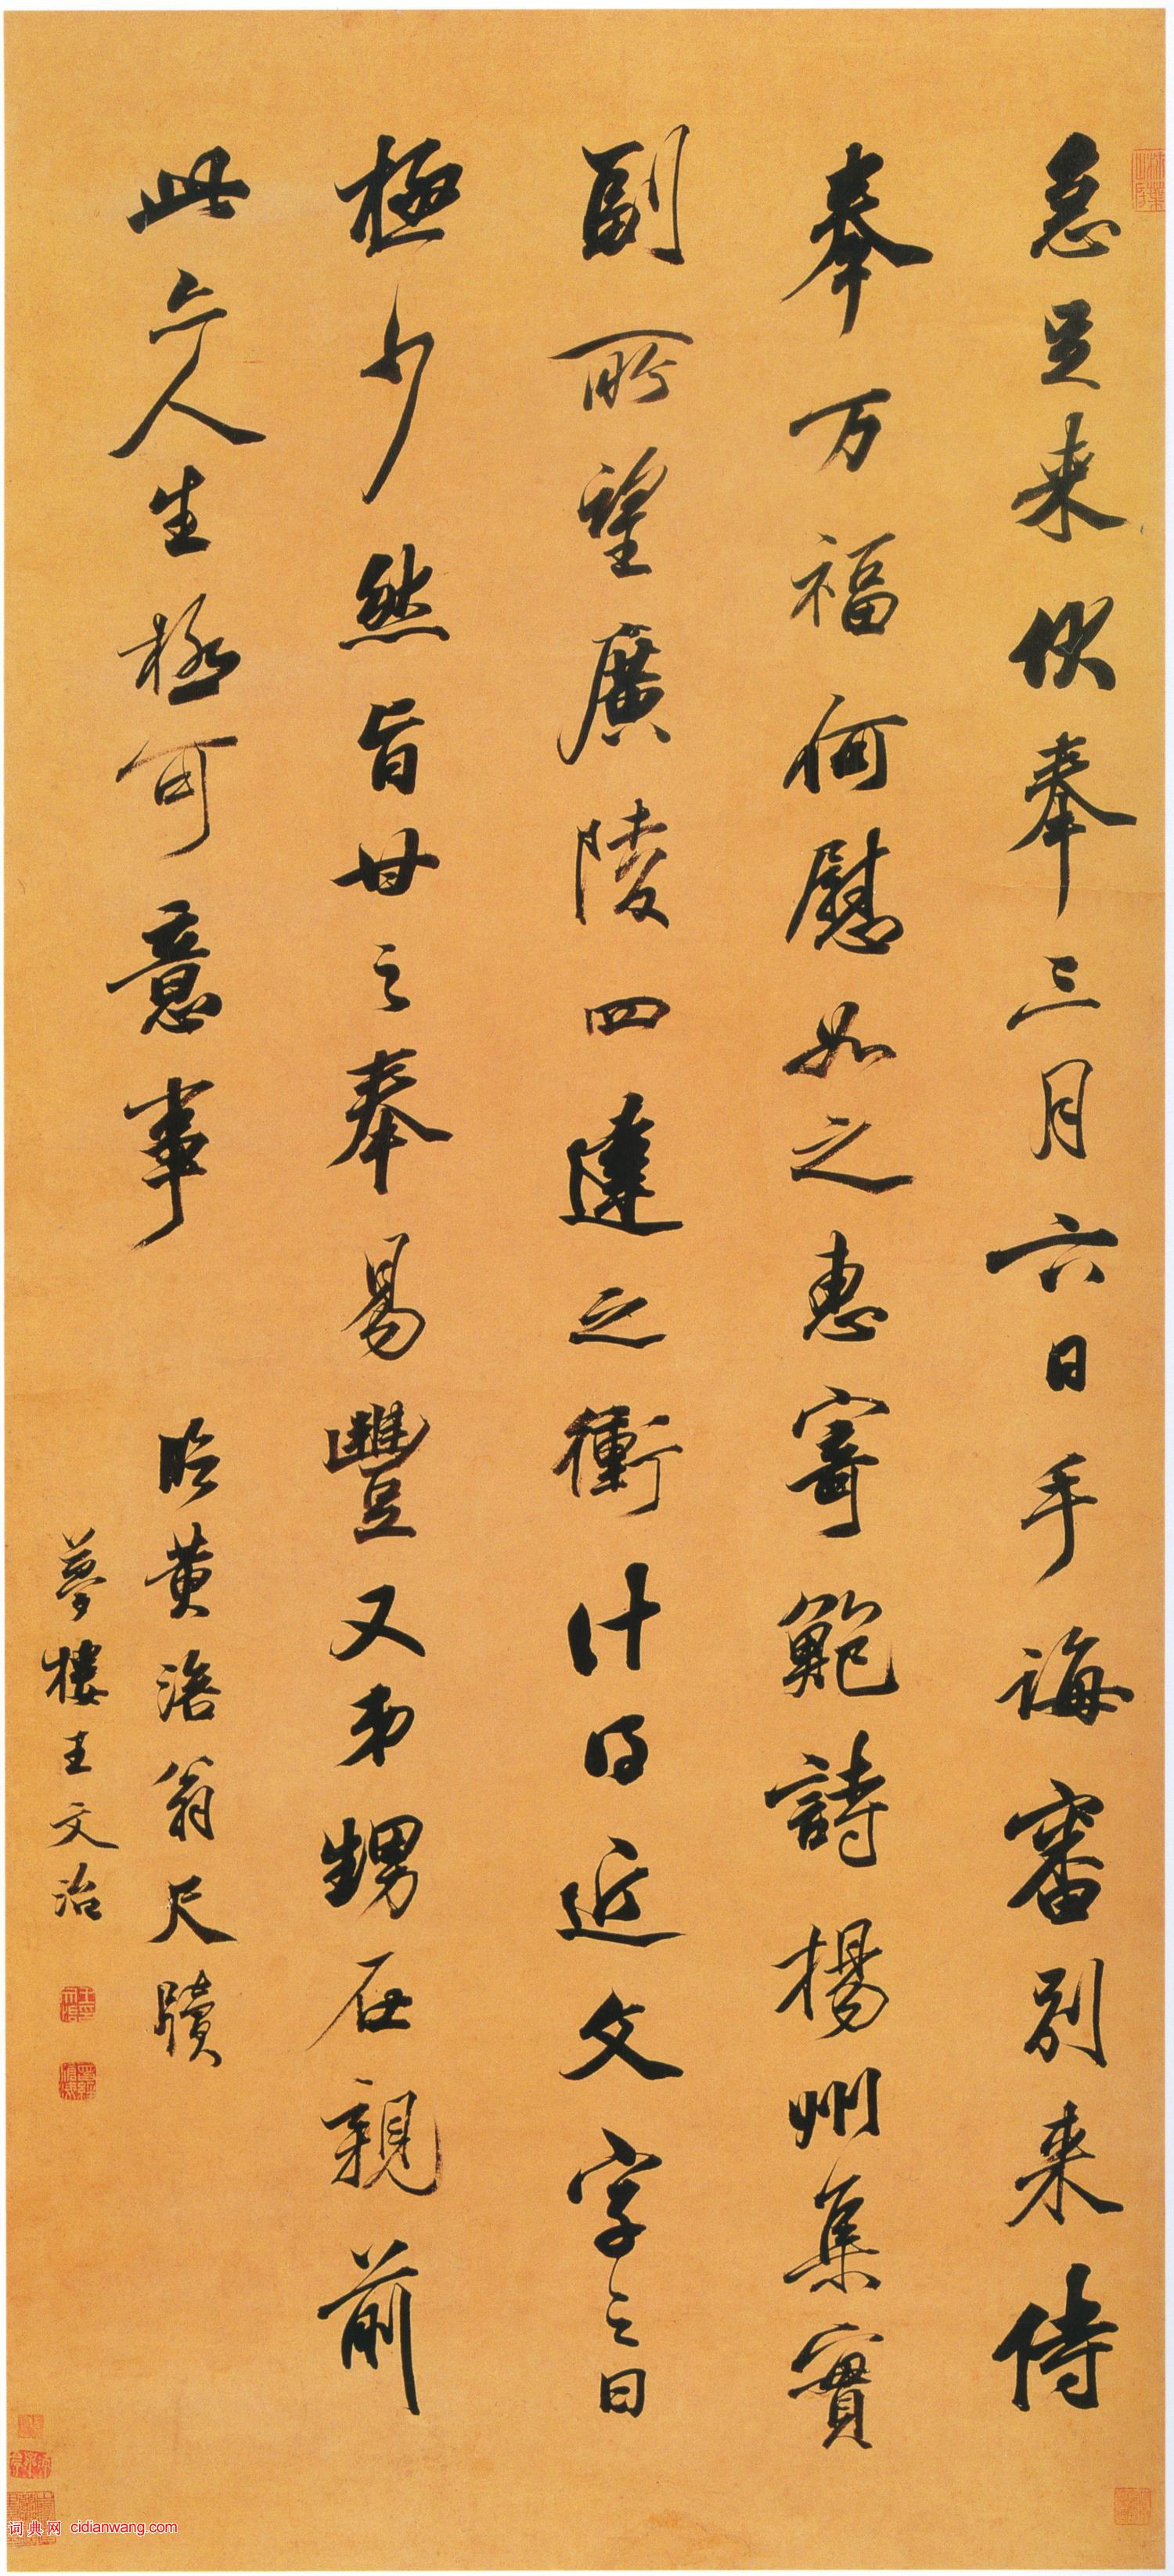 急足来伏奉三月六日手誨審別来侍
奉万福何慰如之惠寄鮑詩楊州集實
副所望廣陵四達之衝計日近文字之日
極少然旨甘之奉易豐又弟甥在親前
此亦人生極可意事
臨黄涪翁尺牘
夢樓王文治
词典网 cidianwang.com